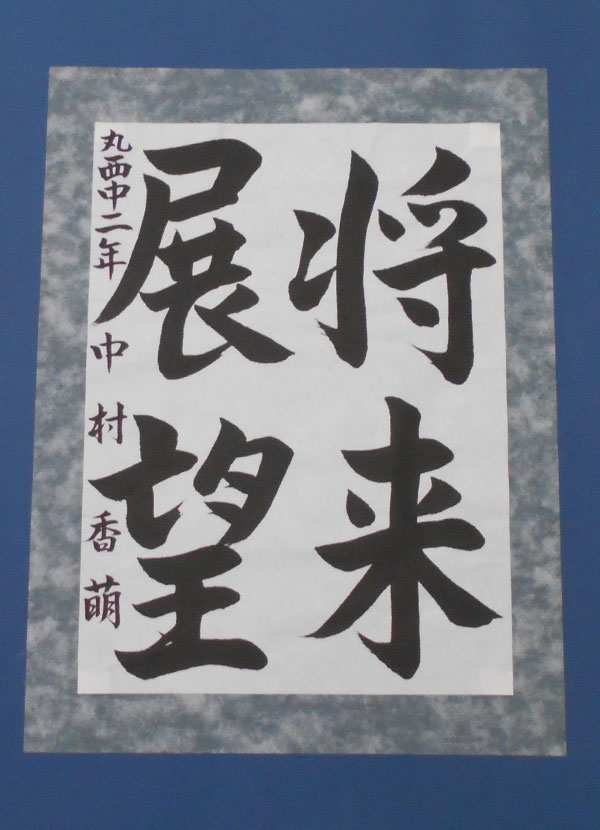 将来
展望
丸西中二年 中村香萌